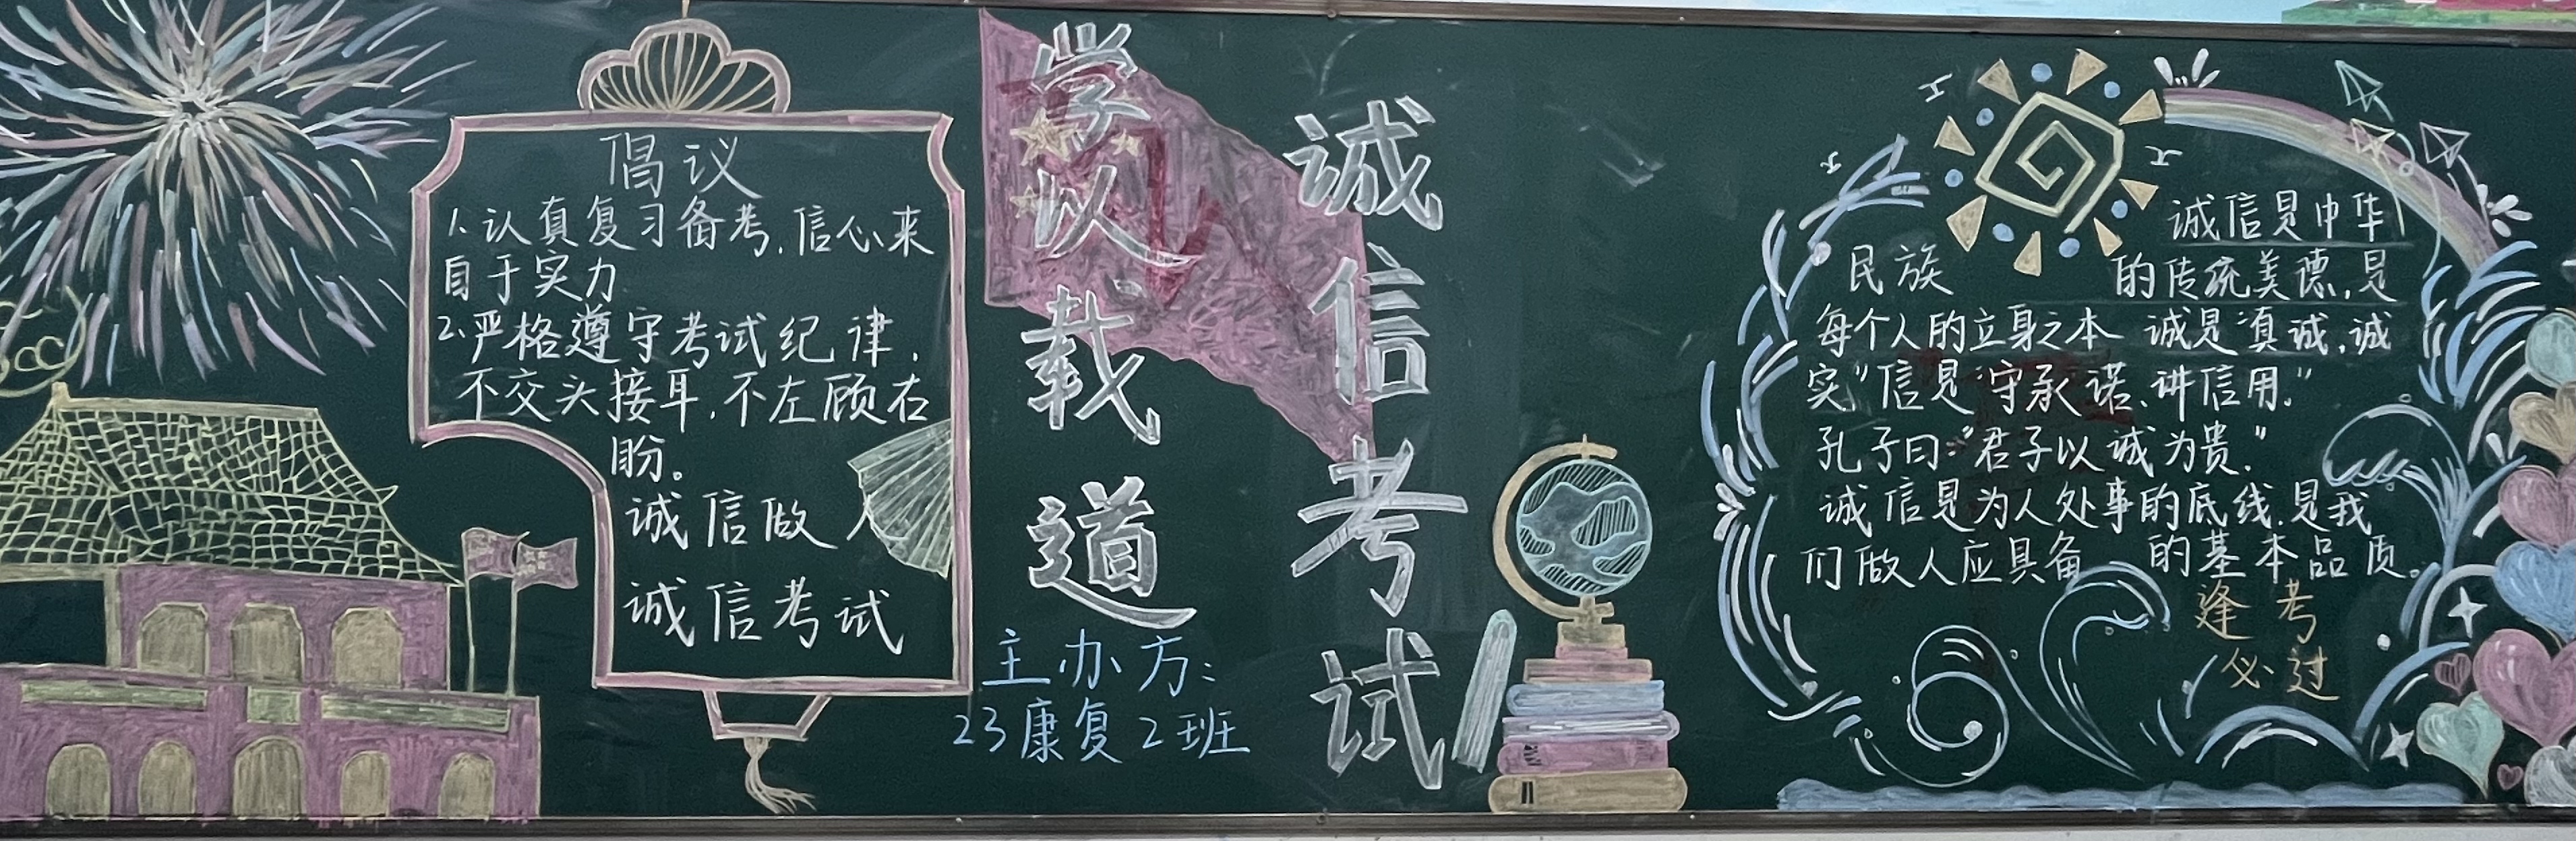 倡议
1.认真复习备考,信心来
自于实力
2.严格遵守考试纪律,
不交头接耳,不左顾右
盼。
诚信做人
诚信考试
学以载道
诚信考试
主办方:
23康复2班
诚信是中华
民族的传统美德,是
每个人的立身之本 诚是"真诚,诚
实"信是"守承诺、讲信用."
孔子曰:"君子以诚为贵."
诚信是为人处事的底线,是我
们做人应具备的基本品质。
逢考
必过